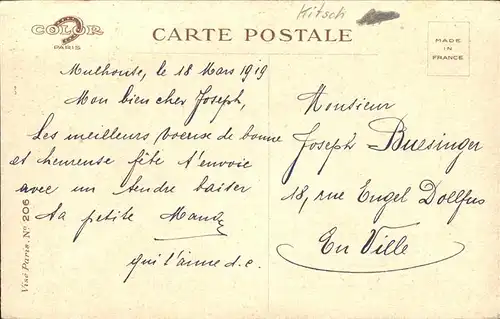 Kitsch
COLOR
PARIS
CARTE POSTALE
MADE
IN
FRANCE
Mulhouse, le 18 Mars 1919
Mon bien cher Joseph,
Les meilleurs voeux de bonne
et heureuse fête t'envoie
avec un tendre baiser
ta petite
qui t'aime d.c.
Monsieur
Joseph Buesinger
18, rue Engel Dollfus
En Ville
Visé Paris. No 206